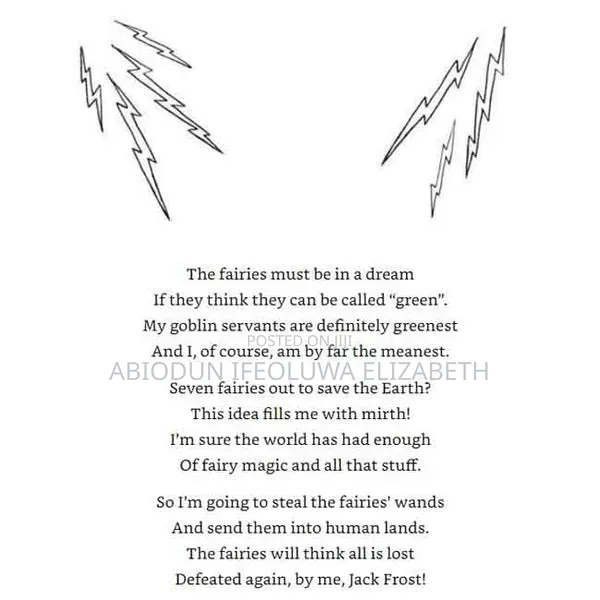 The fairies must be in a dream
If they think they can be called “green”.
My goblin servants are definitely greenest
POSTED ON JIJI
And I, of course, am by far the meanest.
ABIODUN IFEOLUWA ELIZABETH
Seven fairies out to save the Earth?
This idea fills me with mirth!
I’m sure the world has had enough
Of fairy magic and all that stuff.
So I’m going to steal the fairies’ wands
And send them into human lands.
The fairies will think all is lost
Defeated again, by me, Jack Frost!